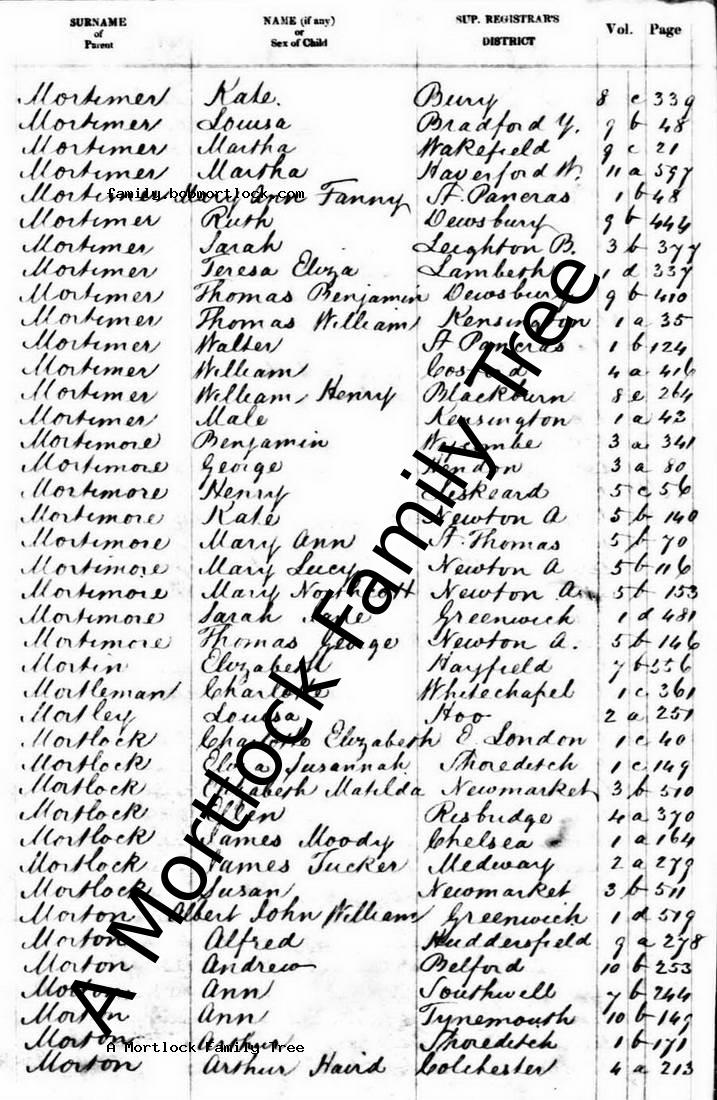 SURNAME of Parent NAME (if any) or Sex of Child SUP. REGISTRAR'S DISTRICT Vol. Page
Mortimer Kate. Bury 8 c 339
Mortimer Louisa Bradford Y. 9 b 48
Mortimer Martha Wakefield 9 c 21
Mortimer Martha Haverford W. 11 a 597
family.bobmortlock.com
Fanny St Pancras 1 b 48
Mortimer Ruth Dewsbury 9 b 444
Mortimer Sarah Leighton B. 3 b 377
Mortimer Teresa Eliza Lambeth 1 d 337
Mortimer Thomas Benjamin Dewsbury 9 b 410
Mortimer Thomas William Kensington 1 a 35
Mortimer Walter St Pancras 1 b 124
Mortimer William Cosford 4 a 416
Mortimer William Henry Blackburn 8 e 264
Mortimer Male Kensington 1 a 42
Mortimore Benjamin Wycombe 3 a 341
Mortimore George Hendon 3 a 80
Mortimore Henry Liskeard 5 c 56
Mortimore Kate Newton A 5 b 140
Mortimore Mary Ann St. Thomas 5 b 70
Mortimore Mary Lucy Newton A 5 b 116
Mortimore Mary Northcott Newton A. 5 b 153
Mortimore Sarah Jane Greenwich 1 d 481
Mortimore Thomas George Newton A. 5 b 146
Mortin Elizabeth Hayfield 7 b 556
Mortleman Charlotte Whitechapel 1 c 361
Mortley Louisa Hoo 2 a 251
Mortlock Charlotte Elizabeth E. London 1 c 40
Mortlock Susannah Shoreditch 1 c 149
Mortlock Elizabeth Matilda Newmarket 3 b 510
Mortlock Ellen Risbridge 4 a 370
Mortlock James Moody Chelsea 1 a 164
Mortlock James Tucker Medway 2 a 279
Mortlock Susan Newmarket 3 b 511
Morton Albert John William Greenwich 1 d 519
Morton Alfred Huddersfield 9 a 278
Morton Andrew Belford 10 b 253
Morton Ann Southwell 7 b 244
Morton Ann Tynemouth 10 b 149
Morton Shoreditch 1 b 171
A Mortlock Family Tree
Morton Arthur Haird Colchester 4 a 213
A Mortlock Family Tree